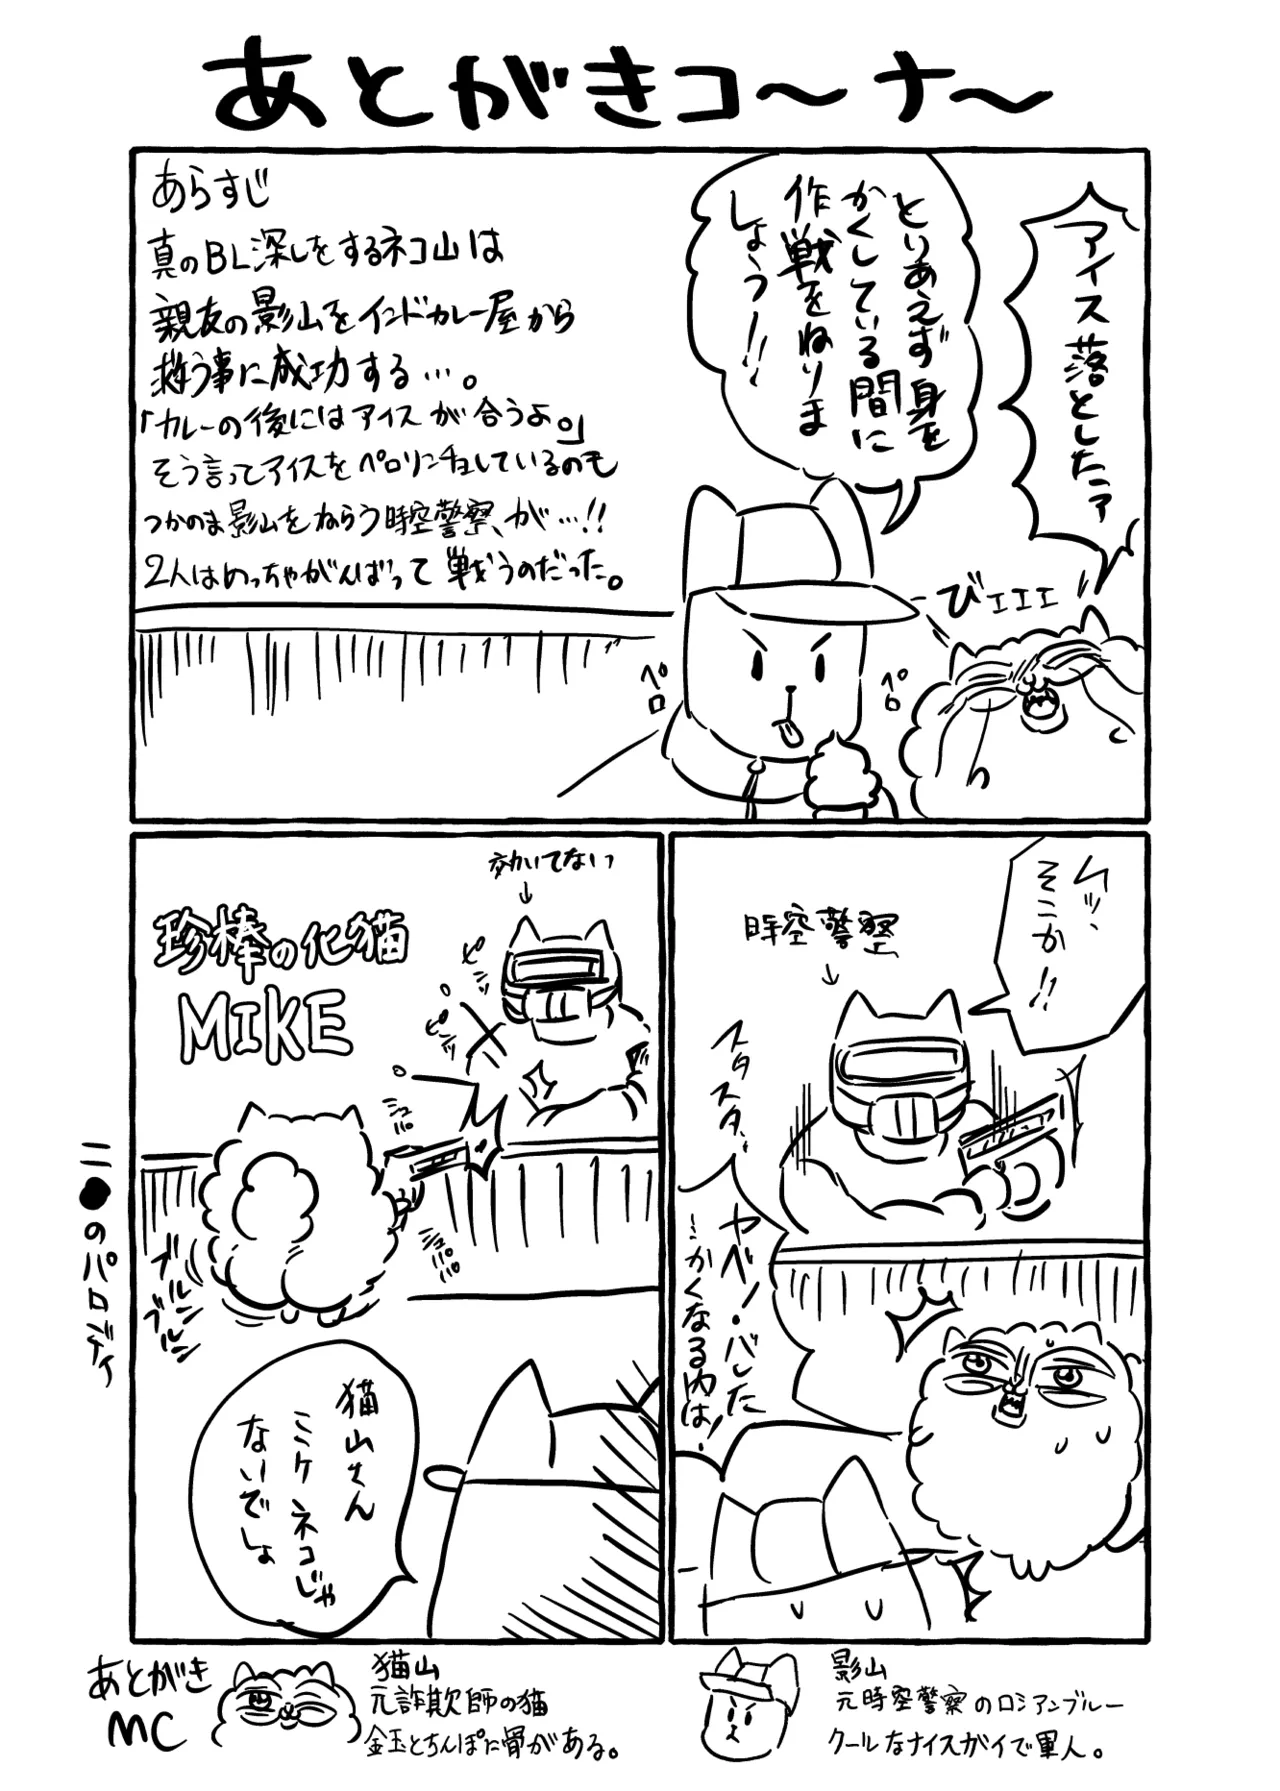 あとがきコ〜ナ〜
アイス落としたァ
びェェェ
とりあえず身を
かくしている間に
作戦をねりま
しょう!!
ペロ
ペロ
あらすじ
真のBL深しをするネコ山は
親友の影山をインドカレー屋から
救う事に成功する…。
「カレーの後にはアイスが合うよ。」
そう言ってアイスをペロリンチョしているのも
つかのま影山をねらう時空警察、が…!!
2人はめっちゃがんばって戦うのだった。
ムッ、
そこか!!
時空警察
スタスタ、
ヤベノ・バレた
…かくなる内は!
効いてないっ
ピンッ
ピンッ
珍棒の化猫
MIKE
ニュパパ
ニュパパ
ブルンブルン
猫山さん
ミケネコじゃ
ないでしょ
二●のパロディ
あとがき
MC
猫山
元詐欺師の猫
金玉とちんぽに骨がある。
影山
元時空警察のロシアンブルー
クールなナイスガイで軍人。